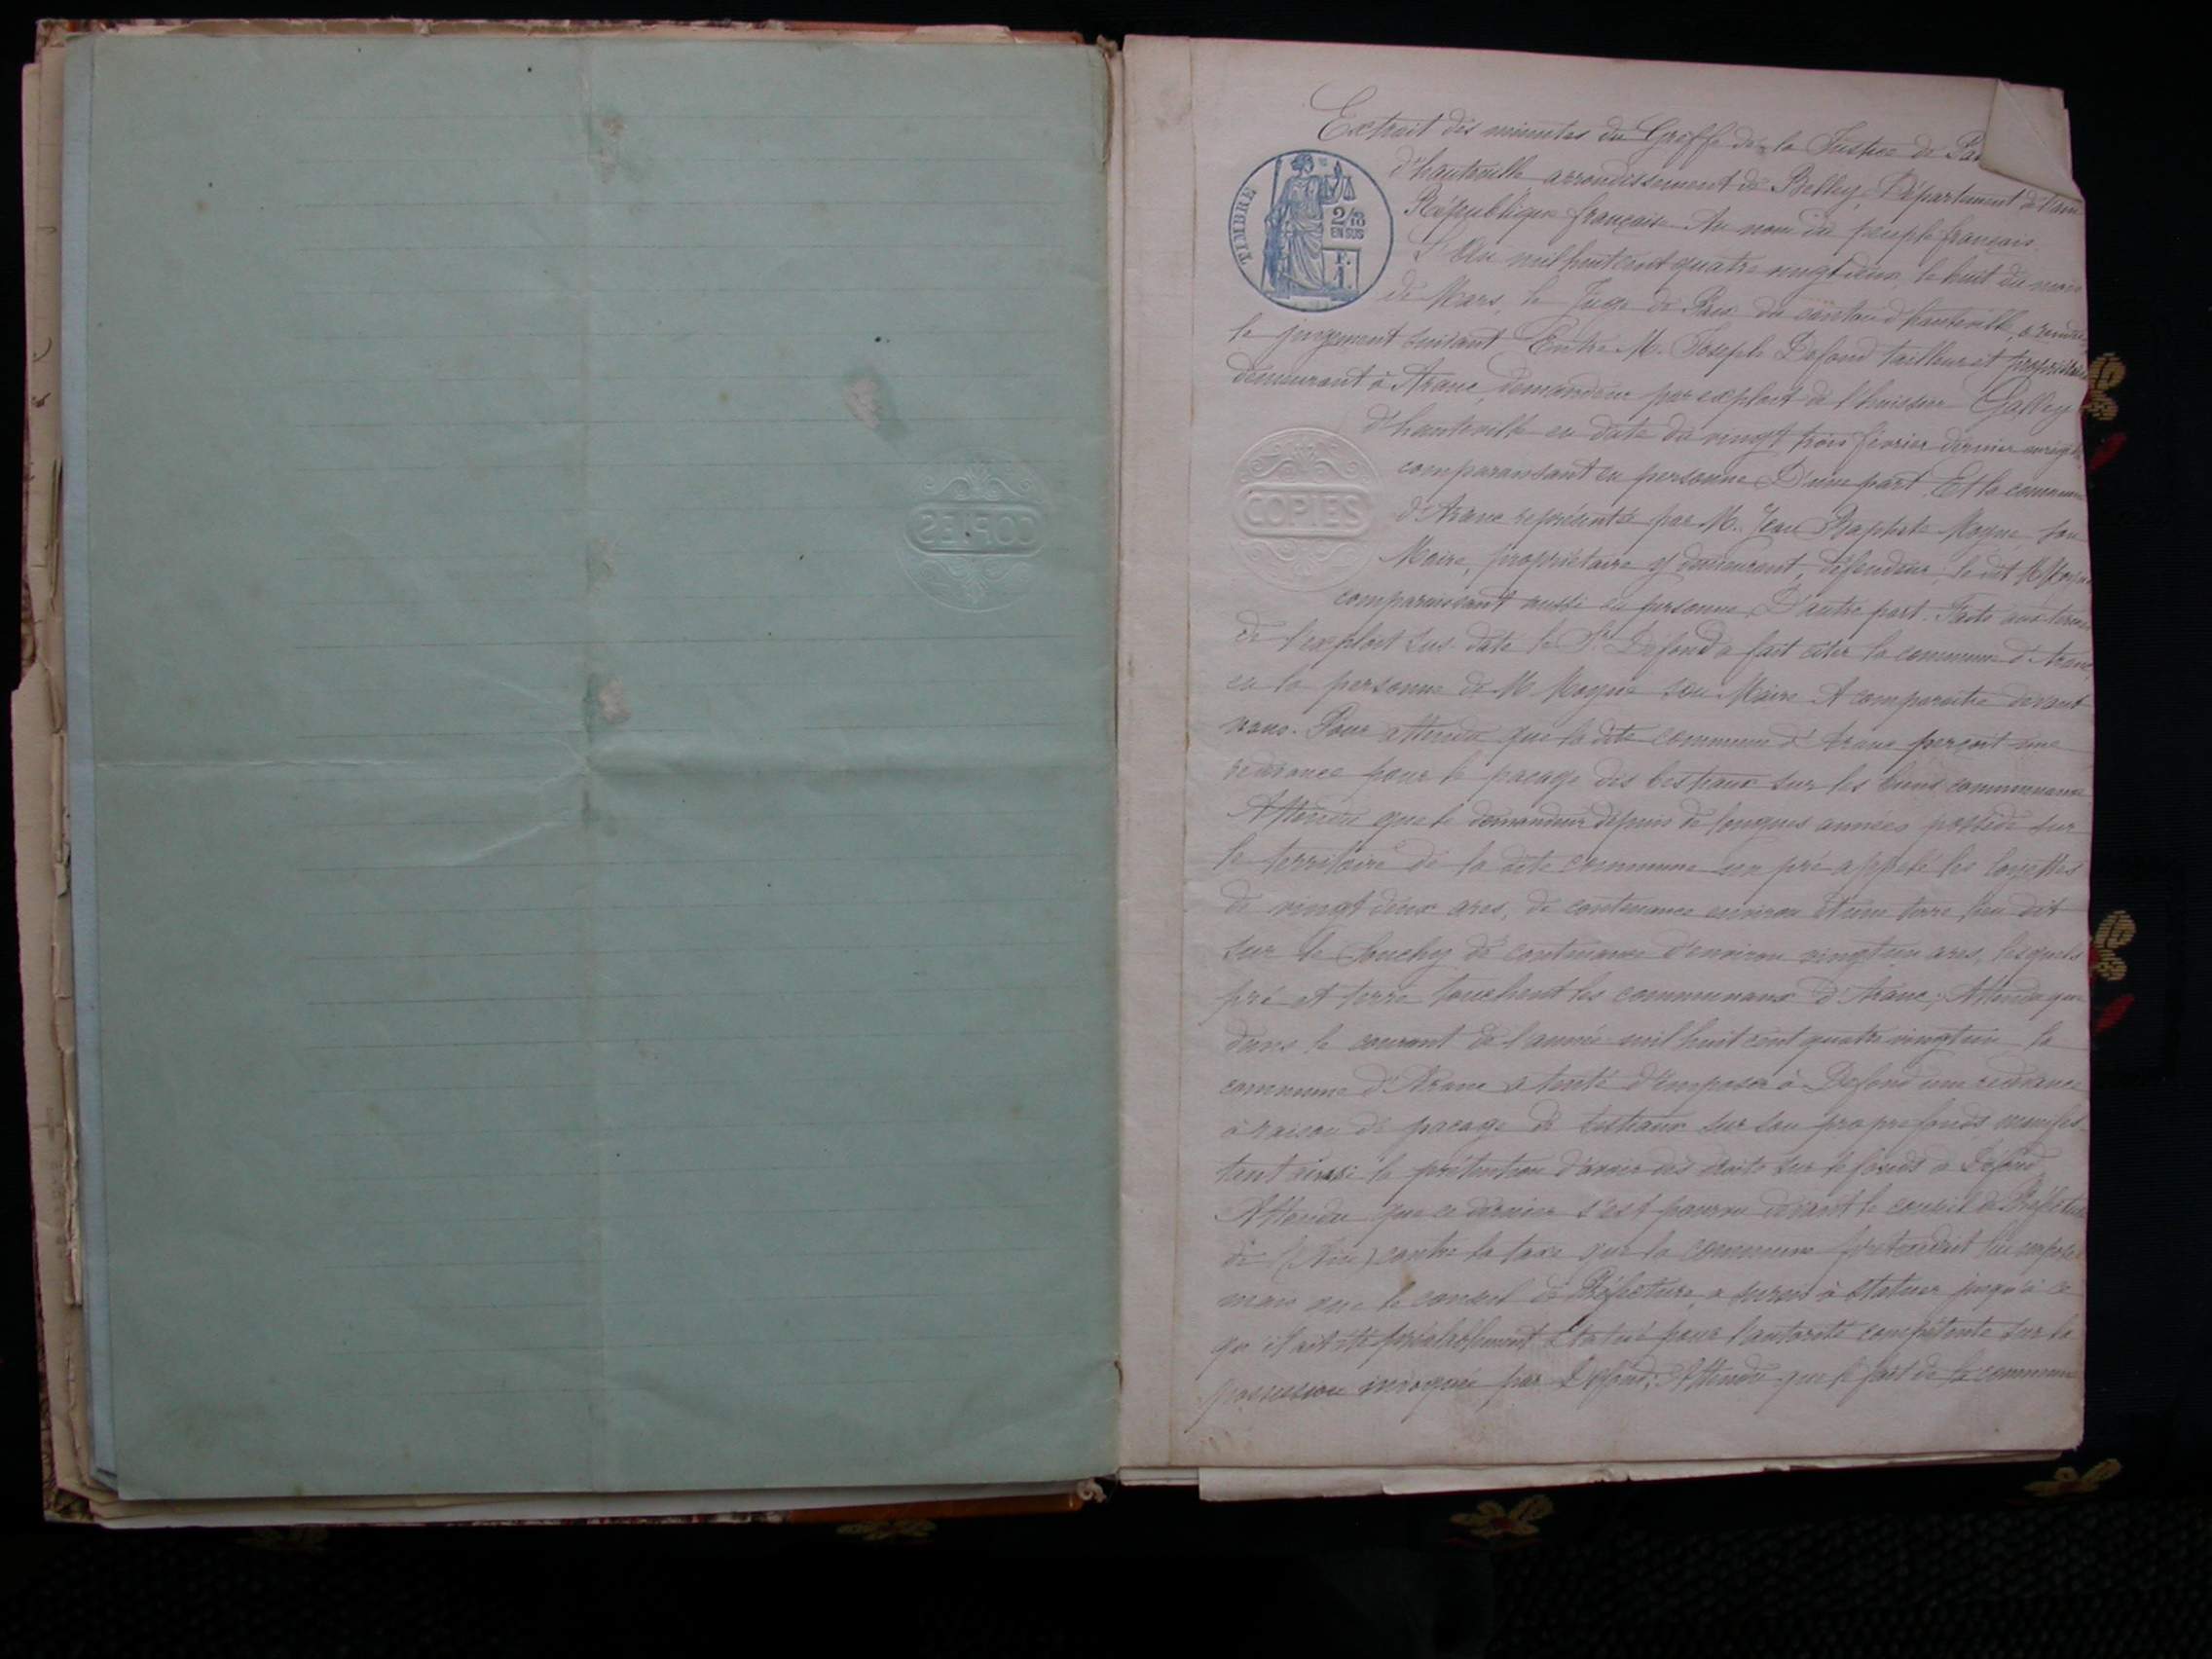 Extrait des minutes du Greffe de la Justice de Pa
d'hauteville arrondissement de Belley, Département de l'ain
République française Au nom du peuple français
L'an mil huit cent quatre vingt deux, le huit du mois
de Mars, le Juge de Paix du canton d'hauteville, a rendu
le jugement suivant Entre M. Joseph Defond tailleur et propriétaire
demeurant à Aranc, demandeur par exploit de l'huissier Galley
d'hauteville en date du vingt trois février dernier enregté
comparaissant en personne D'une part. Et la commune
d'Aranc représentée par M. Jean Baptiste Moyne, son
Maire, propriétaire y demeurant, défendeur, le dit M Moyne
comparaissant aussi en personne D'autre part. Faits aux termes
de l'exploit sus daté le Sr Defond a fait citer la commune d'Aranc
en la personne de M Moyne son Maire A comparaitre devant
nous. Pour attendu que la dite commune d'Aranc perçoit une
redevance pour le pacage des bestiaux sur les biens communaux
Attendu que le demandeur depuis de longues années possède sur
le territoire de la dite commune un pré appelé les
de vingt deux ares, de contenance environ et une terre lieu dit
sur le Souchey de contenance d'environ vingt un ares, lesquels
pré et terre touchent les communaux d'Aranc; Attendu que
dans le courant de l'année mil huit cent quatre vingt un la
commune d'Aranc a tenté d'imposer à Defond une redevance
à raison de pacage de bestiaux sur son propre fonds manifes
tant ainsi la prétention d'avoir des droits sur le fonds à Defond
Attendu que ce dernier s'est pourvu devant le conseil de Préfecture
de l'(Ain) contre la taxe que la commune prétendait lui imposer
mais que le conseil de Préfecture, a sursis à statuer jusqu'à ce
qu'il ait été préalablement statué pour l'autorité compétente sur la
possession invoquée par Defond; Attendu que le fait de la commune
TIMBRE
2/10
EN SUS
F.
1.
COPIES